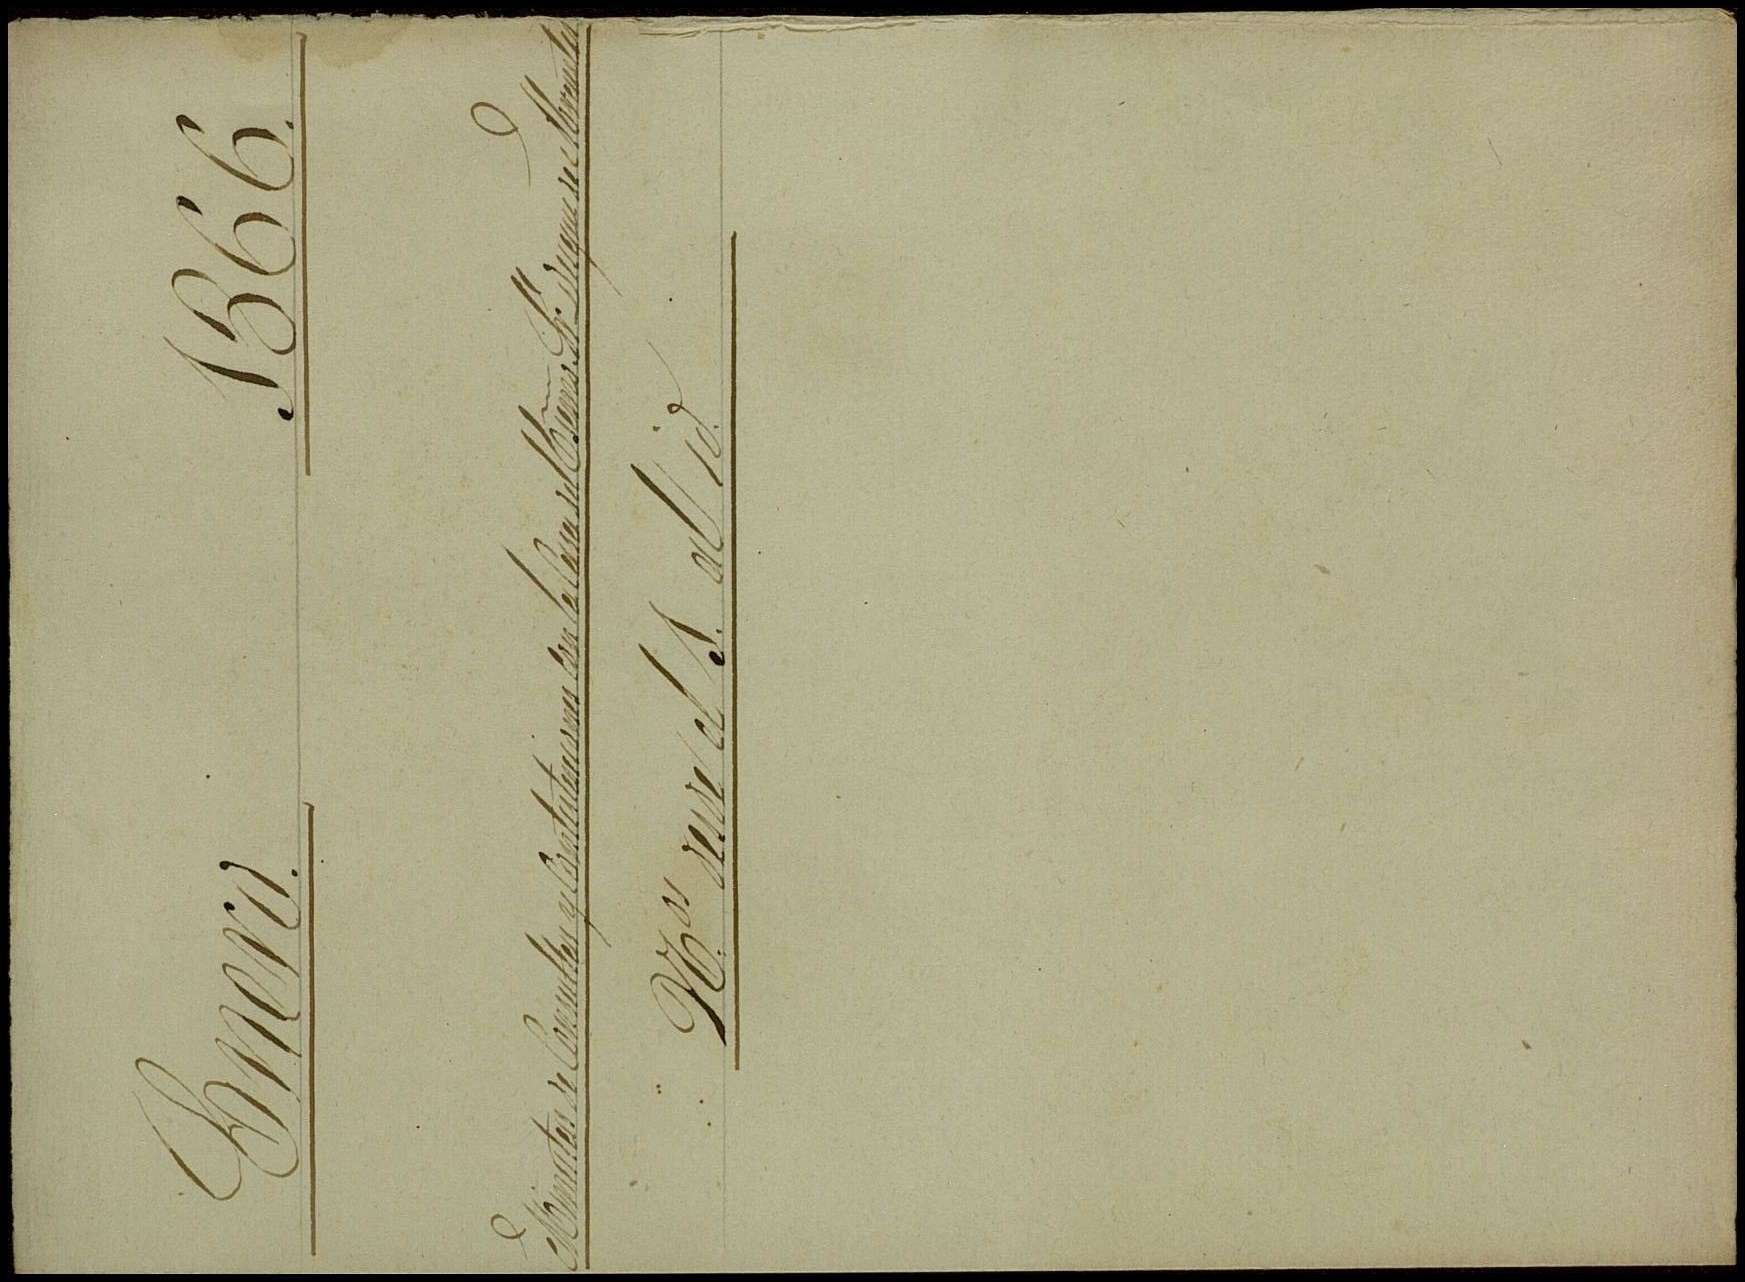 Enero. 1866.
Minutas de Consultas y Contestaciones con la Casa del Exmo. Sr. duque de
Nos. desde el 1. al id.